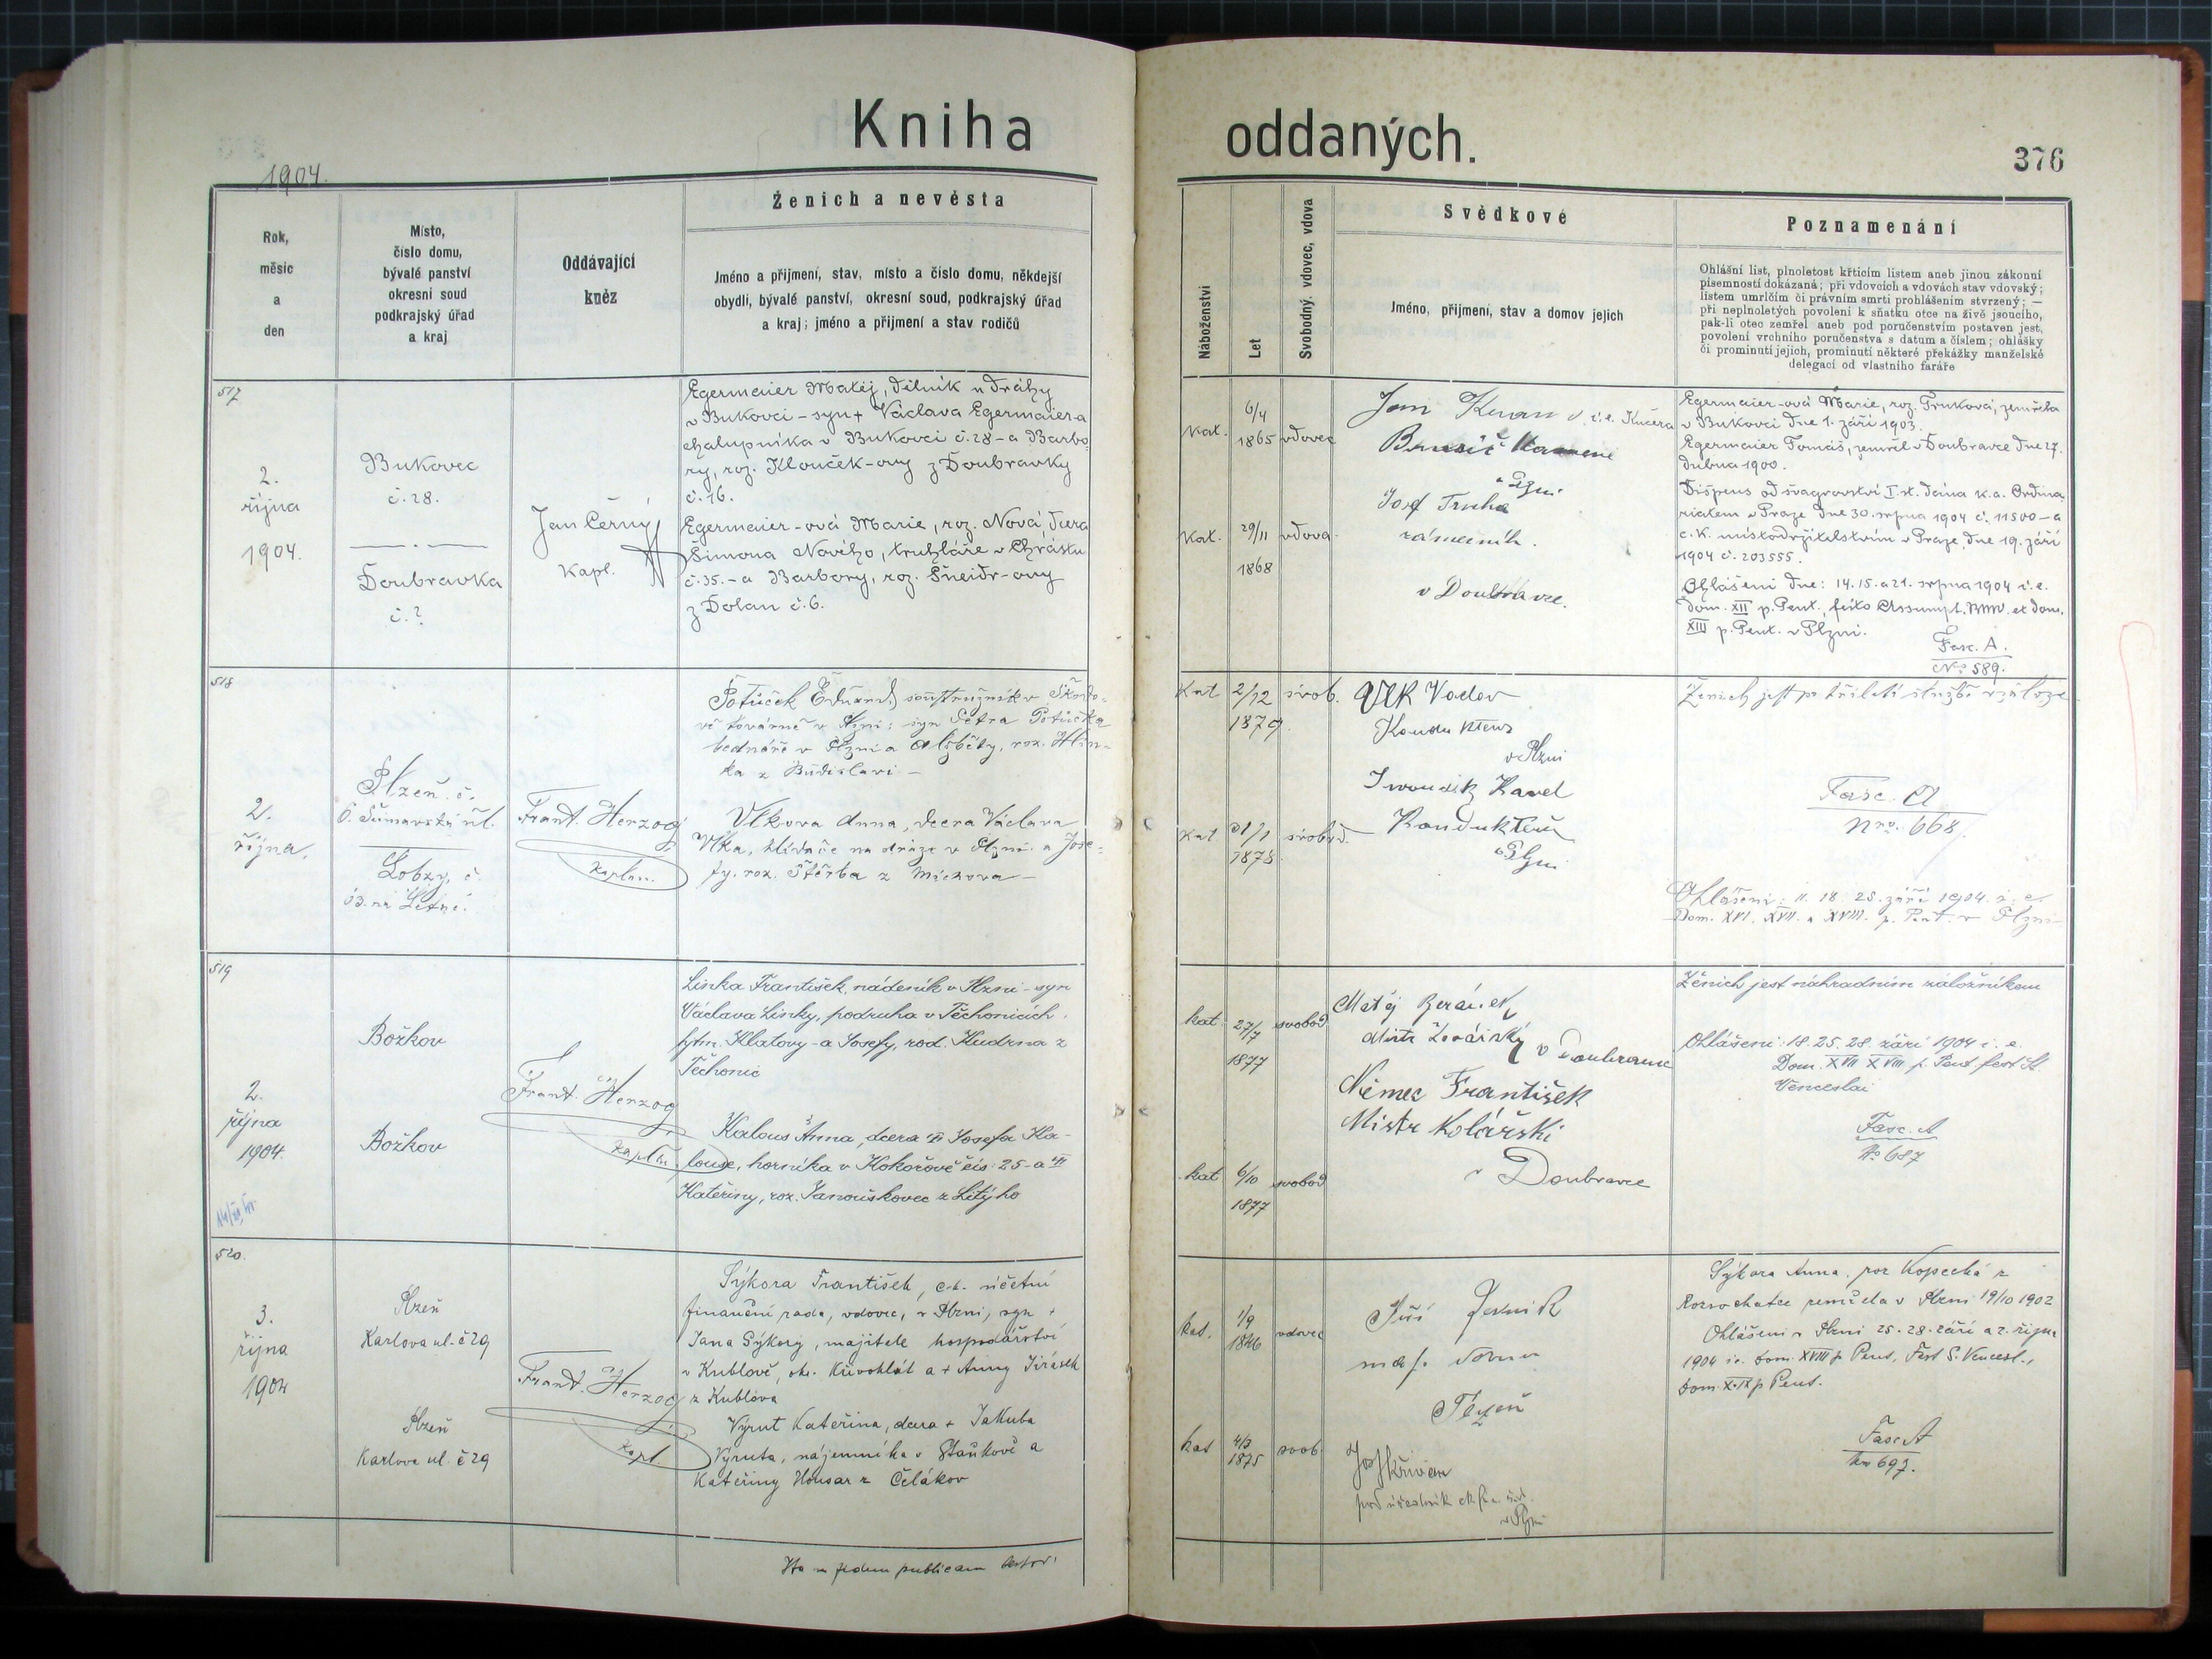 Kniha oddaných.
376
1904.
Rok,
měsíc
a
den
Místo,
číslo domu,
bývalé panství
okresní soud
podkrajský úřad
a kraj
Oddávající
kněz
Ženich a nevěsta
Jméno a příjmení, stav, místo a číslo domu, někdejší
obydlí, bývalé panství, okresní soud, podkrajský úřad
a kraj; jméno a příjmení a stav rodičů
Náboženství
Let
Svobodný, vdovec, vdova
Svědkové
Jméno, příjmení, stav a domov jejich
Poznamenání
Ohlášní list, plnoletost křticím listem aneb jinou zákonní
písemností dokázaná; při vdovcích a vdovách stav vdovský;
listem umrlčím či právním smrti prohlášením stvrzený; —
při neplnoletých povolení k sňatku otce na živě jsoucího,
pak-li otec zemřel aneb pod poručenstvím postaven jest,
povolení vrchního poručenstva s datum a číslem; ohlášky
či prominutí jejich, prominutí některé překážky manželské
delegací od vlastního faráře
517
2.
října
1904.
Bukovec
č. 28.
Doubravka
č. ?
Jan Černý
kapl.
Egermaier Matěj, dělník u dráhy
v Bukovci – syn + Václava Egermaier-a
chalupníka v Bukovci č. 28 – a Barbo-
ry, roz. Klouček-ovy z Doubravky
č. 16.
Egermaier-ová Marie, roz. Nová, dcera
Šimona Nového, truhláře v Chrástu
č. 35. – a Barbory, roz. Šneidr-ovy
z Dolan č. 6.
kat. 6/4 1865 vdovec
kat. 29/11 1868 vdova
Jan i.e. Kučera
v Plzni
Josef Trnka
zámečník.
v Doubravce.
Egermaier-ová Marie, roz. Trnková, zemřela
v Bukovci dne 1. září 1903.
Egermaier Tomáš, zemřel v Doubravce dne 27.
dubna 1900.
Dispens od švagrovství I. st. dána k. a. Ordina
riatem v Praze dne 30. srpna 1904 č. 11500 – a
c. k. místodržitelstvím v Praze, dne 19. září
1904 č. 203555.
Ohlášeni dne: 14. 15. a 21. srpna 1904 i. e.
Dom. XII p. Pent., festo Assumpt. BMV. et dom.
XIII p. Pent. v Plzni.
Fasc. A.
No 589.
518
2.
října.
Plzeň č.
6. Šumavská ul.
Lobzy, č.
53. na Letné.
Frant. Herzog
kaplan.
Potůček Eduard, soustružník v Škodo-
vě továrně v Plzni: syn Petra Potůčka
bednáře v Plzni a Alžběty, roz. Hlin-
ka z Budislavi –
Vlkova Anna, dcera Václava
Vlka, hlídače na dráze v Plzni a Jose-
fy, roz. Štěrba z Míchova –
Kat 2/12 1879. svob.
Kat 31/1 1878. svobod.
Vlk Václav
Kondukteur
v Plzni
Karel
Kondukteur
v Plzni
Ženich jest po tříleté službě v záloze
Fasc. A
Nro. 668.
Ohlášeni: 11. 18. 25. září 1904. i. e.
Dom. XVI. XVII. a XVIII. p. Pent. v Plzni
519
2.
října
1904.
Božkov
Božkov
Frant. Herzog
kaplan.
Linka František, nádeník v Plzni – syn
Václava Linky, podruha v Těchonicích,
hejtm. Klatovy – a Josefy, rod. Kudrna z
Těchonic
Kalous Anna, dcera Josefa Ka-
louse, horníka v Kokořově čís. 25 – a
Kateřiny, roz. Janouškovec z Litýho
kat 27/7 1877 svobod
kat 6/10 1877 svobod
Matěj Beránek
v Doubravce
Němec František
Mistr Kolářski
v Doubravce
Ženich jest náhradním záložníkem
Ohlášeni: 18. 25. 28. září 1904 i. e.
Dom. XVII XVIII p. Pent. fest St.
Venceslai
Fasc. A
No 687
520.
3.
října
1904
Plzeň
Karlova ul. č 29
Plzeň
Karlova ul. č 29
Frant. Herzog
kapl.
Sýkora František, c.k. účetní
finanční rada, vdovec, v Plzni, syn +
Jana Sýkory, majitele hospodářství
v Kublově, okr. Křivoklát a + Anny Jirásek
z Kublova
Výrut Kateřina, dcera + Jakuba
Výruta, nájemníka v Staňkově a
Kateřiny Housar z Čelákov
kat. 1/9 1846 vdovec
kat 4/3 1875 svob
Jiří
maj. domu
Plzeň
Josef
v Plzni
Sýkora Anna, roz Kopecká z
Rozsochatce zemřela v Plzni 19/10 1902
Ohlášeni v Plzni 25. 28. září a 2. října
1904 i.e. Dom. XVIII p Pent, Fest S. Vencesl.,
Dom. XIX p Pent.
Fasc A
No 697.
Ita in fidem publicam testor: